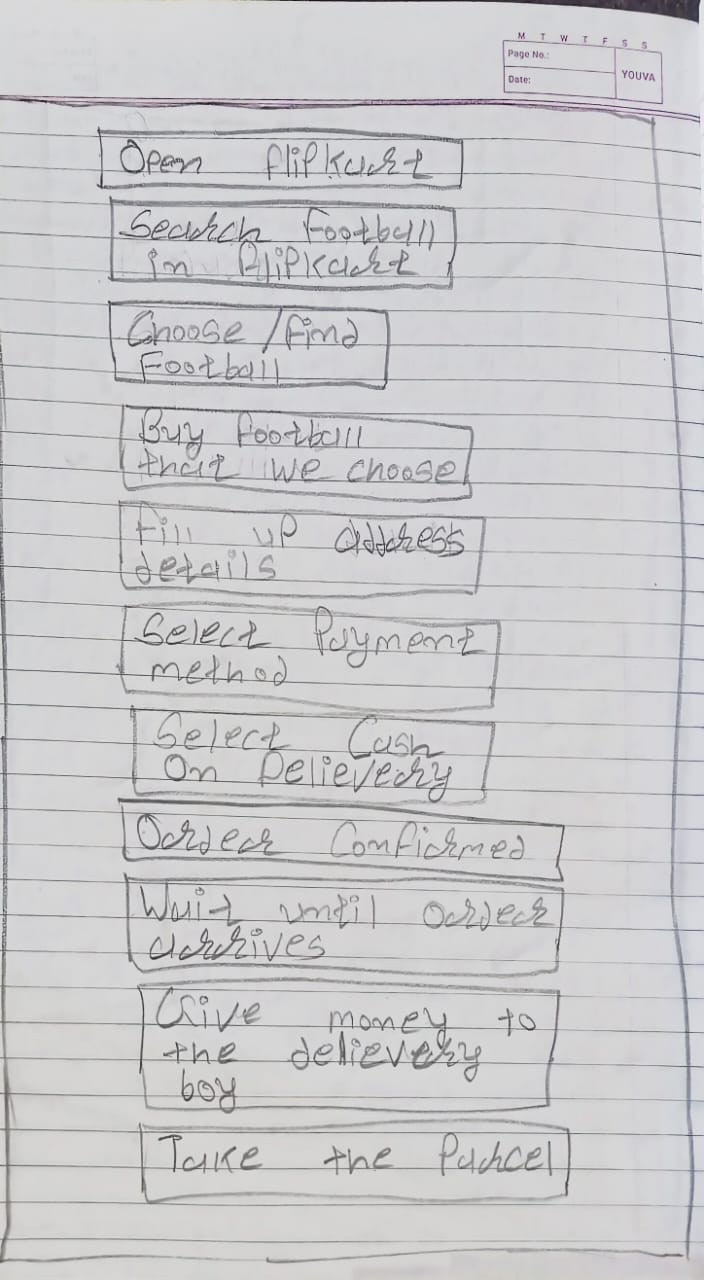 M T W T F S S
Page No.:
Date:
YOUVA
Open flipkart
Search Football
in flipkart
Choose / find
Football
Buy football
that we choose
Fill up address
details
Select Payment
method
Select Cash
On Delievery
Order Confirmed
Wait until order
arrives
Give money to
the delievery
boy
Take the Parcel